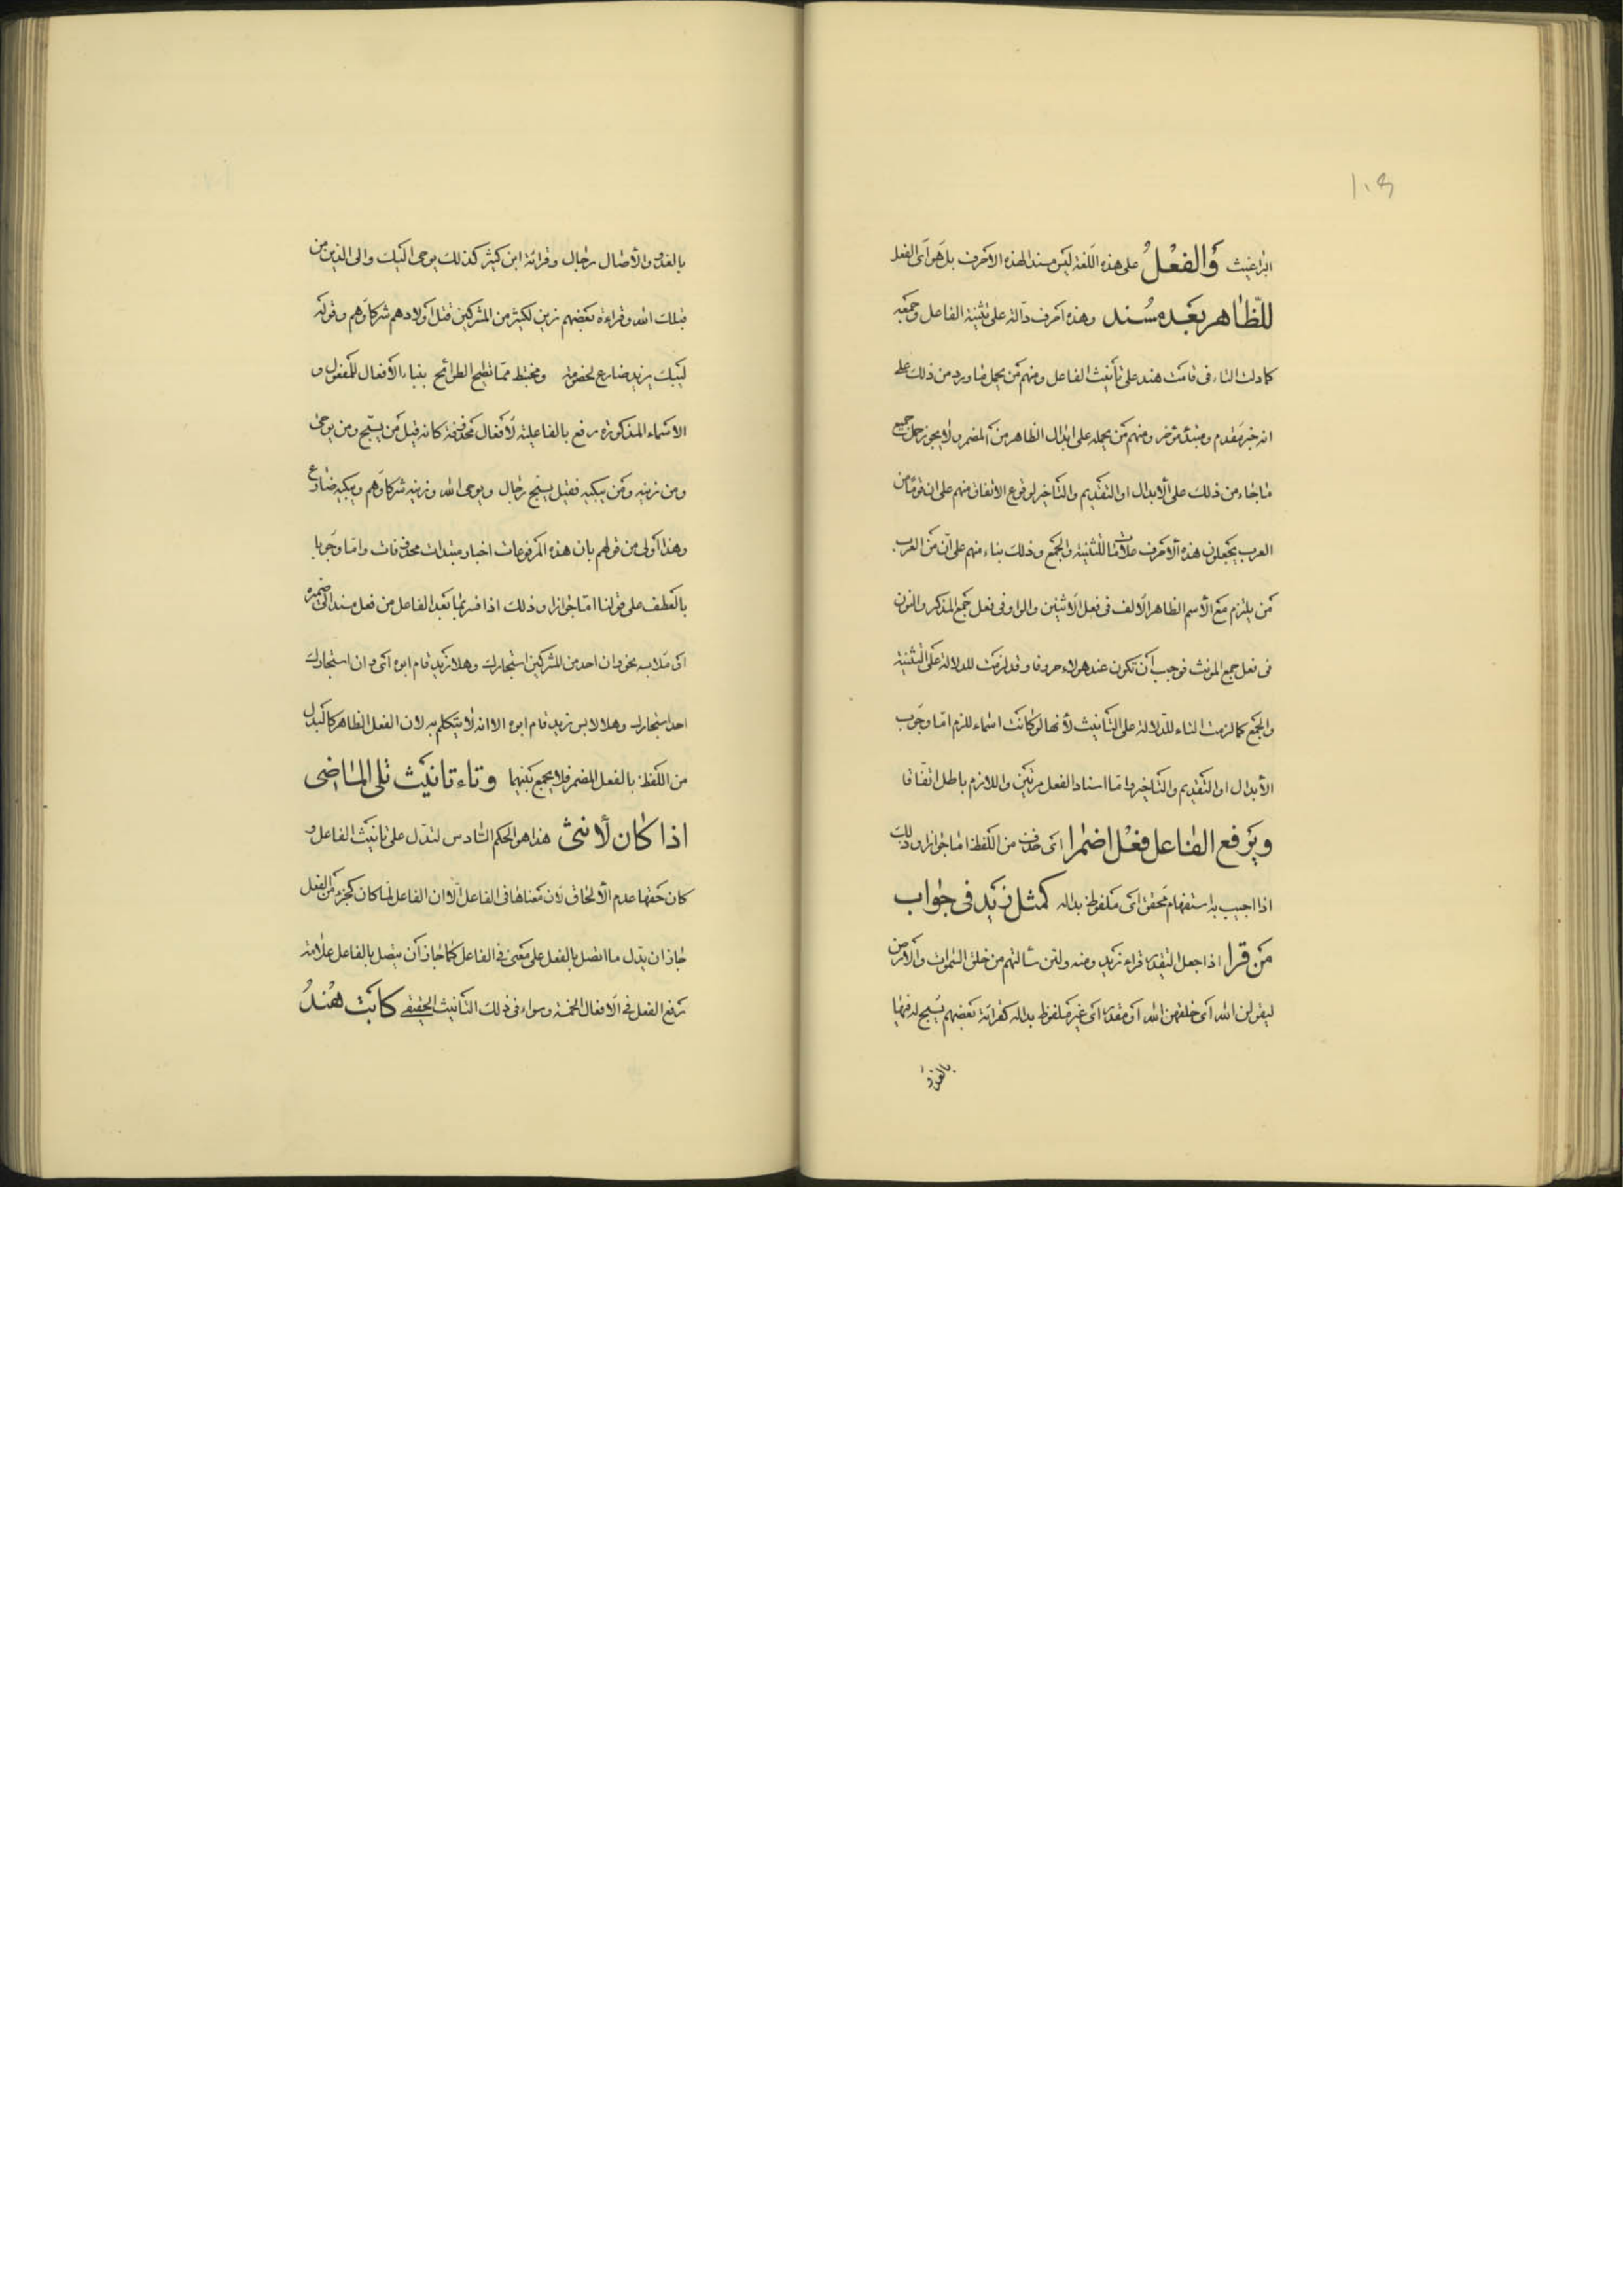 ١٠٩
البراغيث وَالفعْلُ على هذه اللغة ليس مسندا لهذه الاحرف بل هو اى الفعل
للظّاهر بعَده مُسند وهذه احرف دالة على تثنية الفاعل وجمعه
كما دلت التاء فى قامت هند على تأنيث الفاعل ومنهم من يحمل ما ورد من ذلك على
انه خبر مقدم ومبتدأ مؤخر ومنهم من يحمله على ابدال الظاهر من المضمر ولا يجوز حمل جميع
ما جاء من ذلك على الابدال او التقديم والتاخير لوقوع الاتفاق منهم على ان قوما من
العرب يجعلون هذه الاحرف علامات للتثنية والجمع وذلك بناء منهم على ان من العرب
من يلتزم مع الاسم الظاهر الالف فى فعل الاثنين والواو فى فعل جمع المذكر والنون
فى فعل جمع المونث فوجب ان تكون عند هولاء حروفا وقد لزمت للدلالة على التثنية
والجمع كما لزمت التاء للدلالة على التأنيث لأنها لو كانت اسماء للزم اما وجوب
الأبدال او التقديم والتاخير واما اسناد الفعل مرتين واللازم باطل اتفاقا
ويَرفع الفاعل فعْل اضمرا اى حذف من اللفظ اما جوازا وذلك
اذا اجيب به استفهام محقق اى ملفوظ بداله كمثل زيد فى جواب
مَن قرا اذا جعل التقدير قراء زيد ومنه ولئن سألتهم من خلق السموات والارض
ليقولن الله اى خلقهن الله او مقدر اى غير ملفوظ بداله كقراءة بعضهم يسبح له فيها
بالغدو
بالغدو والأصال رجال وقرائة ابن كثير كذلك يوحى اليك والى الذين من
قبلك الله وقراءة بعضهم زين لكثير من المشركين قتل اولادهم شركاؤهم وقوله
ليبك يزيد ضارع لخصومة ومختبط مما تطيح الطوائح ببناء الأفعال للمفعول و
الاسماء المذكورة رفع بالفاعلية لأفعال محذوفة كانه قيل من يسبح ومن يوحى
ومن زينه ومن يبكيه فقيل يسبح رجال ويوحى الله وزينه شركاؤهم ويبكيه ضارع
وهذا اولى من قولهم بان هذه المرفوعات اخبار مبتدات محذوفات واما وجوبا
بالعطف على قولنا اما جوازا وذلك اذا فسر بما بعد الفاعل من فعل مسند الى ضميره
او ملابسه نحو وان احد من المشركين استجارك وهلا زيد قام ابوه اى وان استجارك
احد استجارك وهلا لابس زيد قام ابوه الا انه لا يتكلم به لان الفعل الظاهر كالبدل
من اللفظ بالفعل المضمر فلا يجمع بينهما وتاء تانيث تلى الماضى
اذا كان لأنثى هذا هو الحكم السادس لتدل على تانيث الفاعل و
كان حقها عدم الالحاق لان معناها فى الفاعل الا ان الفاعل لما كان كجزء من الفعل
جاز ان يدل ما اتصل بالفعل على معنى فى الفاعل كما جاز ان يتصل بالفاعل علامة
رفع الفعل فى الافعال الخمسة وسواء فى ذلك التانيث الحقيقى كابَت هْندُ